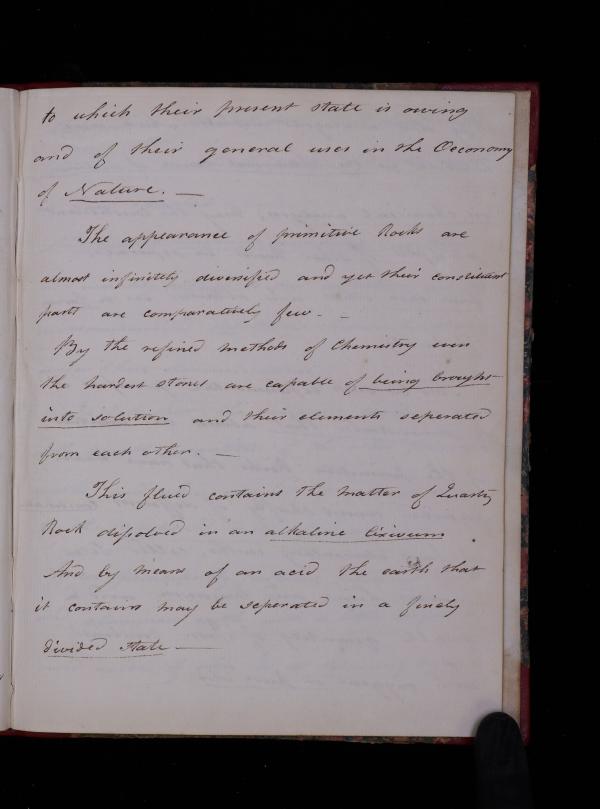 to which their present state is owing
and of their general uses in the Oeconomy
of Nature. —
The appearance of primitive Rocks are
almost infinitely diversified and yet their constituent
parts are comparatively few. —
By the refined methods of Chemistry even
the hardest stones are capable of being brought
into solution and their elements seperated
from each other. —
This fluid contains the matter of Quartz
Rock dissolved in an alkaline lixivium.
And by means of an acid the earth that
it contains may be seperated in a finely
divided state —